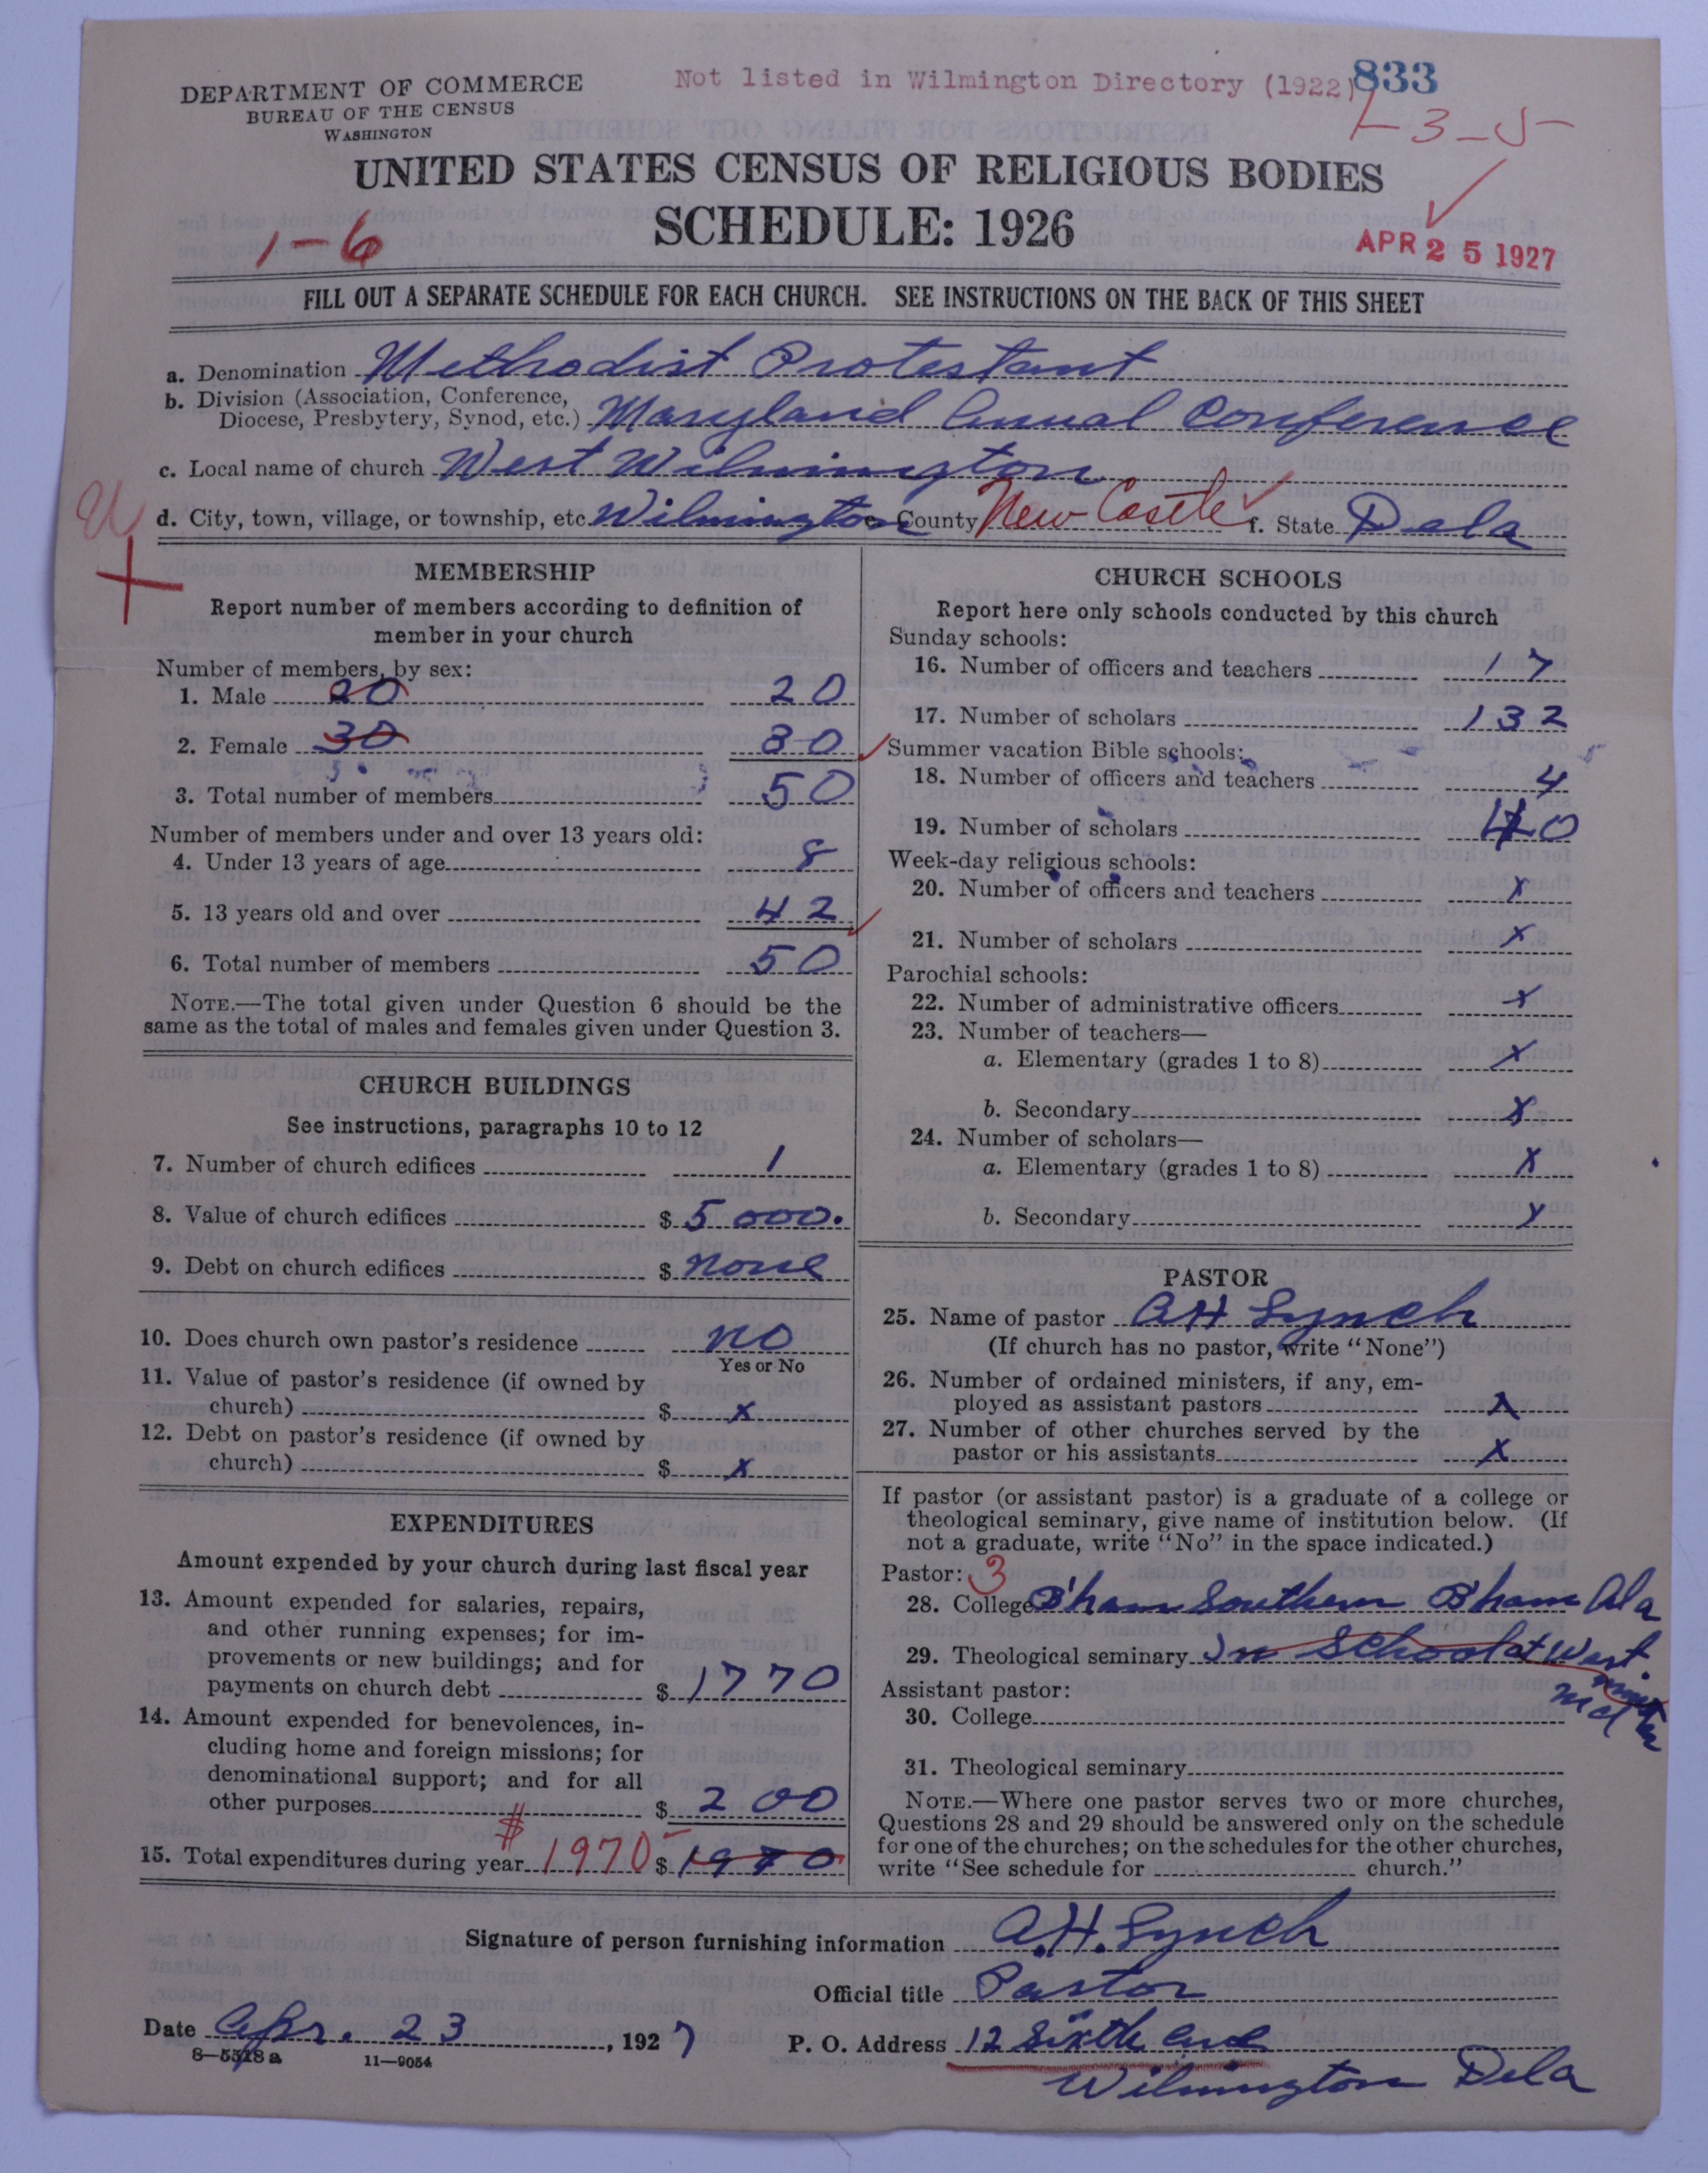 DEPARTMENT OF COMMERCE
BUREAU OF THE CENSUS
WASHINGTON
Not listed in Wilmington Directory (1922)
833
1-3-5
UNITED STATES CENSUS OF RELIGIOUS BODIES
SCHEDULE: 1926
1-6
APR 25 1927
FILL OUT A SEPARATE SCHEDULE FOR EACH CHURCH. SEE INSTRUCTIONS ON THE BACK OF THIS SHEET
a. Denomination Methodist Protestant
b. Division (Association, Conference,
Diocese, Presbytery, Synod, etc.) Maryland Annual Conference
c. Local name of church West Wilmington
d. City, town, village, or township, etc. Wilmington e. County New Castle f. State Dela
MEMBERSHIP
Report number of members according to definition of
member in your church
Number of members, by sex:
1. Male 20 20
2. Female 30 30
3. Total number of members 50
Number of members under and over 13 years old:
4. Under 13 years of age 8
5. 13 years old and over 42
6. Total number of members 50
NOTE.—The total given under Question 6 should be the
same as the total of males and females given under Question 3.
CHURCH BUILDINGS
See instructions, paragraphs 10 to 12
7. Number of church edifices 1
8. Value of church edifices $ 5000.
9. Debt on church edifices $ none
10. Does church own pastor's residence no
Yes or No
11. Value of pastor's residence (if owned by
church) $ x
12. Debt on pastor's residence (if owned by
church) $ x
EXPENDITURES
Amount expended by your church during last fiscal year
13. Amount expended for salaries, repairs,
and other running expenses; for im-
provements or new buildings; and for
payments on church debt $ 1770
14. Amount expended for benevolences, in-
cluding home and foreign missions; for
denominational support; and for all
other purposes $ 200
15. Total expenditures during year $ 1970 $ 1970
CHURCH SCHOOLS
Report here only schools conducted by this church
Sunday schools:
16. Number of officers and teachers 17
17. Number of scholars 132
Summer vacation Bible schools:
18. Number of officers and teachers 4
19. Number of scholars 40
Week-day religious schools:
20. Number of officers and teachers x
21. Number of scholars x
Parochial schools:
22. Number of administrative officers x
23. Number of teachers—
a. Elementary (grades 1 to 8) x
b. Secondary x
24. Number of scholars—
a. Elementary (grades 1 to 8) x
b. Secondary x
PASTOR
25. Name of pastor A H Lynch
(If church has no pastor, write "None")
26. Number of ordained ministers, if any, em-
ployed as assistant pastors x
27. Number of other churches served by the
pastor or his assistants x
If pastor (or assistant pastor) is a graduate of a college or
theological seminary, give name of institution below. (If
not a graduate, write "No" in the space indicated.)
Pastor: 3
28. College B'ham Southern B'ham Ala
29. Theological seminary In School at West.
minster
Md
Assistant pastor:
30. College
31. Theological seminary
NOTE.—Where one pastor serves two or more churches,
Questions 28 and 29 should be answered only on the schedule
for one of the churches; on the schedules for the other churches,
write "See schedule for church."
Signature of person furnishing information A.H. Lynch
Official title Pastor
Date Apr. 23, 1927
P. O. Address 12 Sixth ave
Wilmington Dela
8—5518 a 11—9054